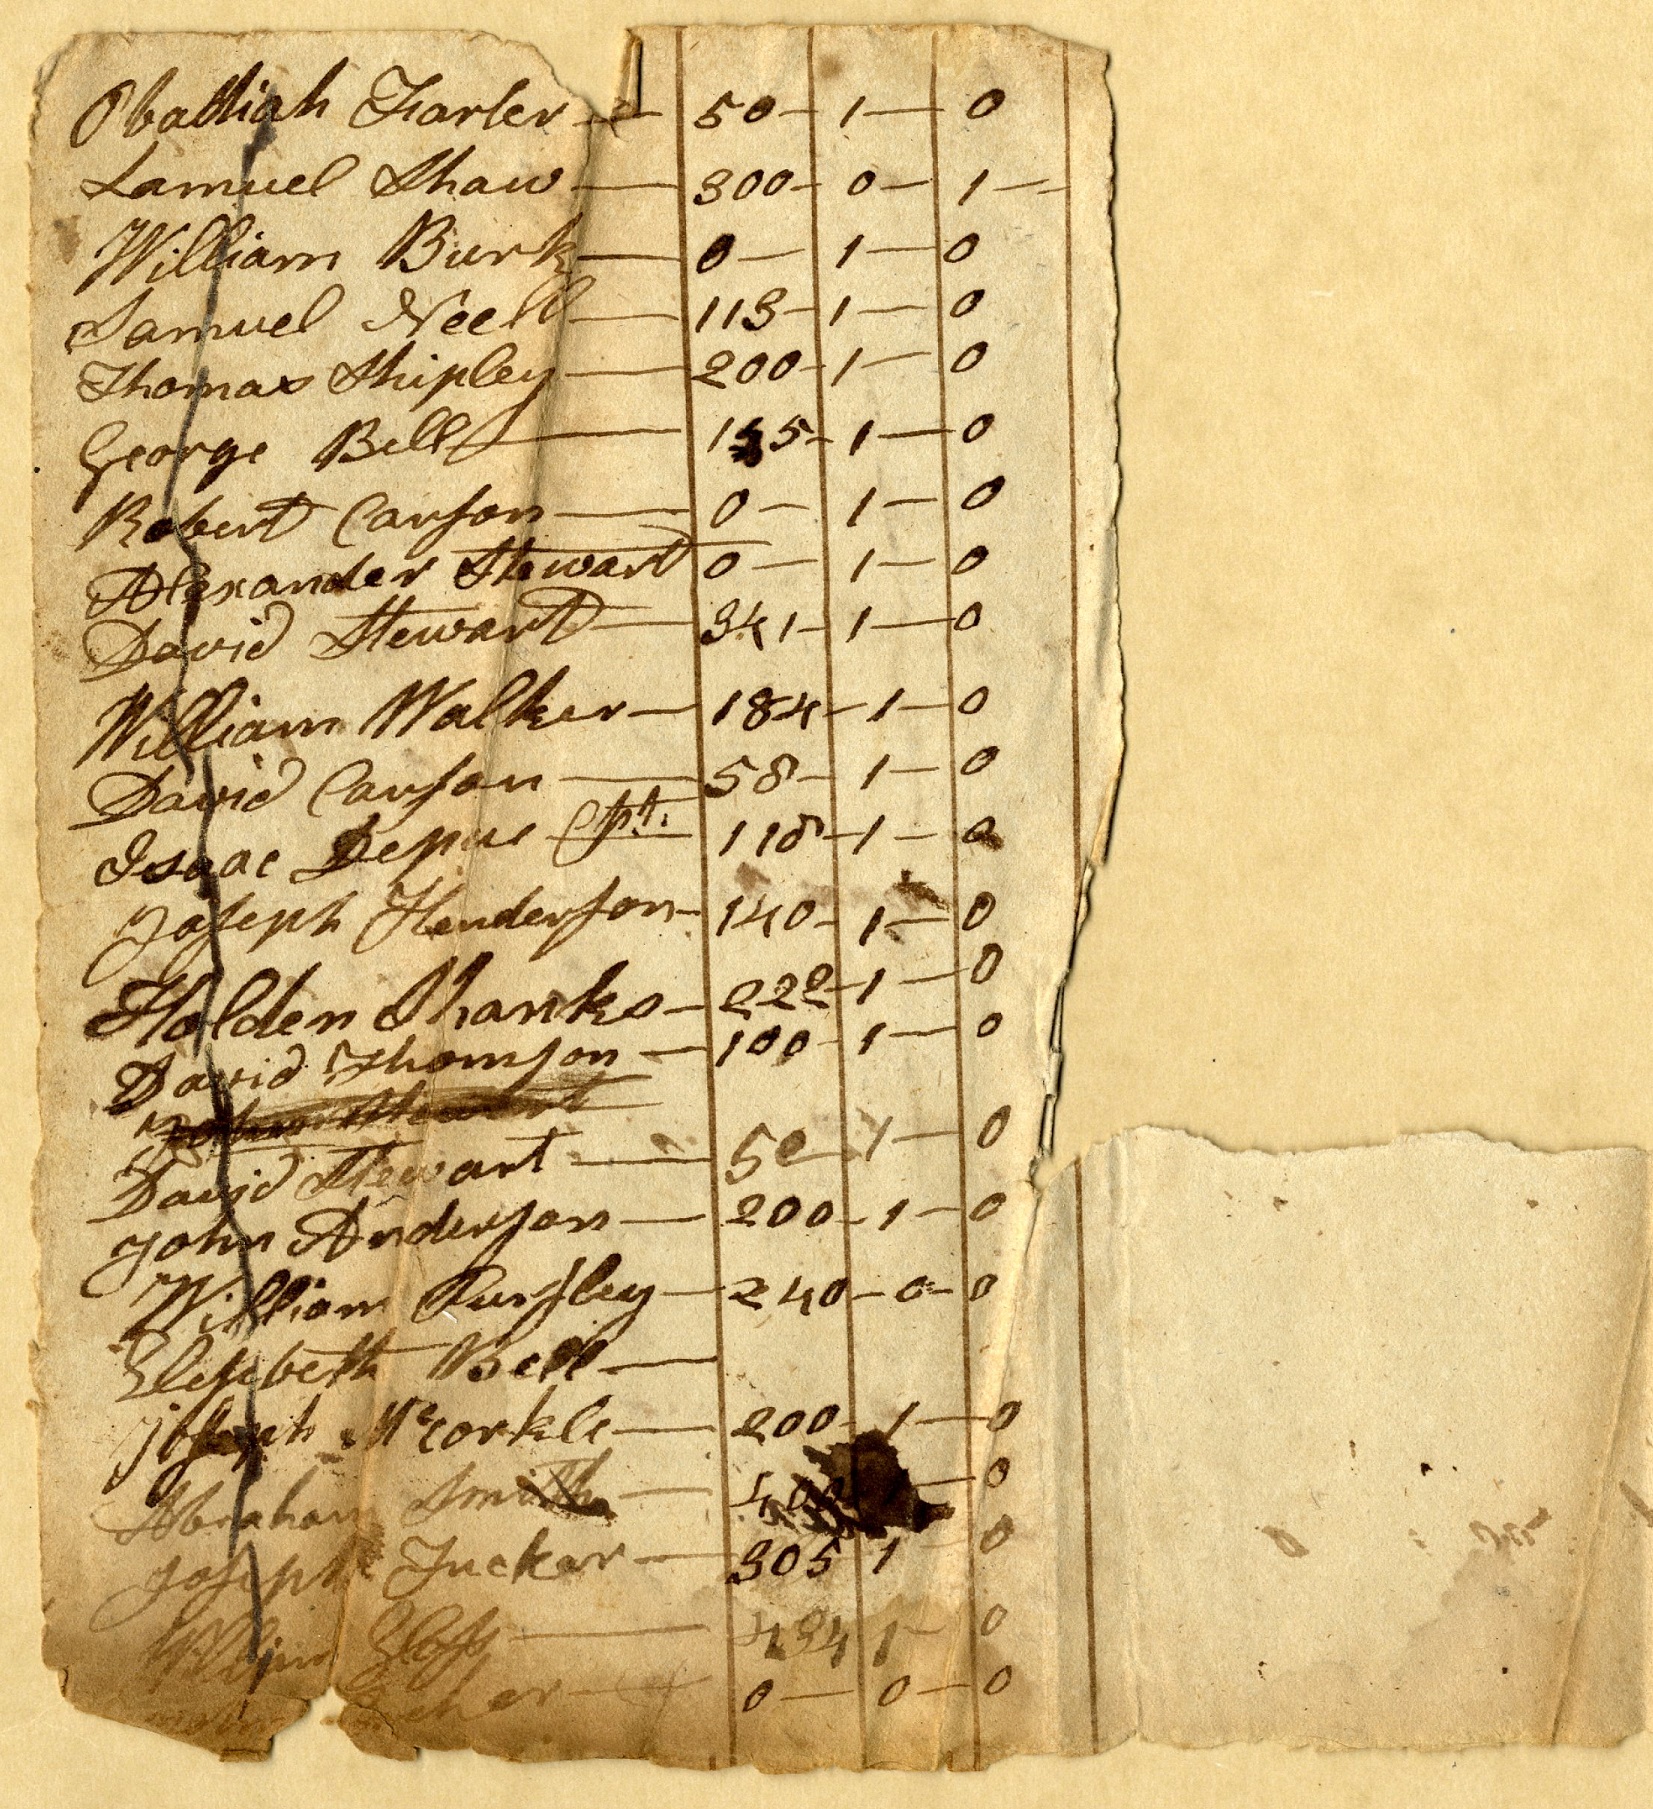 Obadiah Farler — 50 — 1 — 0
Samuel Shaw — 300 — 0 — 1 —
William Burk — 0 — 1 — 0
Samuel Neell — 113 — 1 — 0
Thomas Shipley — 200 — 1 — 0
George Bell — 1 5 — 1 — 0
Robert Carson — 0 — 1 — 0
Alexander Stewart 0 — 1 — 0
David Stewart — 341 — 1 — 0
William Walker — 184 — 1 — 0
David Carson — 58 — 1 — 0
Isaac Depue Cpt. 118 — 1 — 0
Joseph Henderson — 140 — 1 — 0
Holden Shanks — 222 — 1 — 0
David Thomson — 100 — 1 — 0
Stewart
David Stewart — 50 — 1 — 0
John Anderson — 200 — 1 — 0
William Pursley — 240 — 0 — 0
Elesebeth Bell —
Joseph McCorkle — 200 — 1 — 0
Abraham Smith — — 0
Joseph Tucker — 305 1 — 0
William — 434 1 — 0
— 0 — 0 — 0